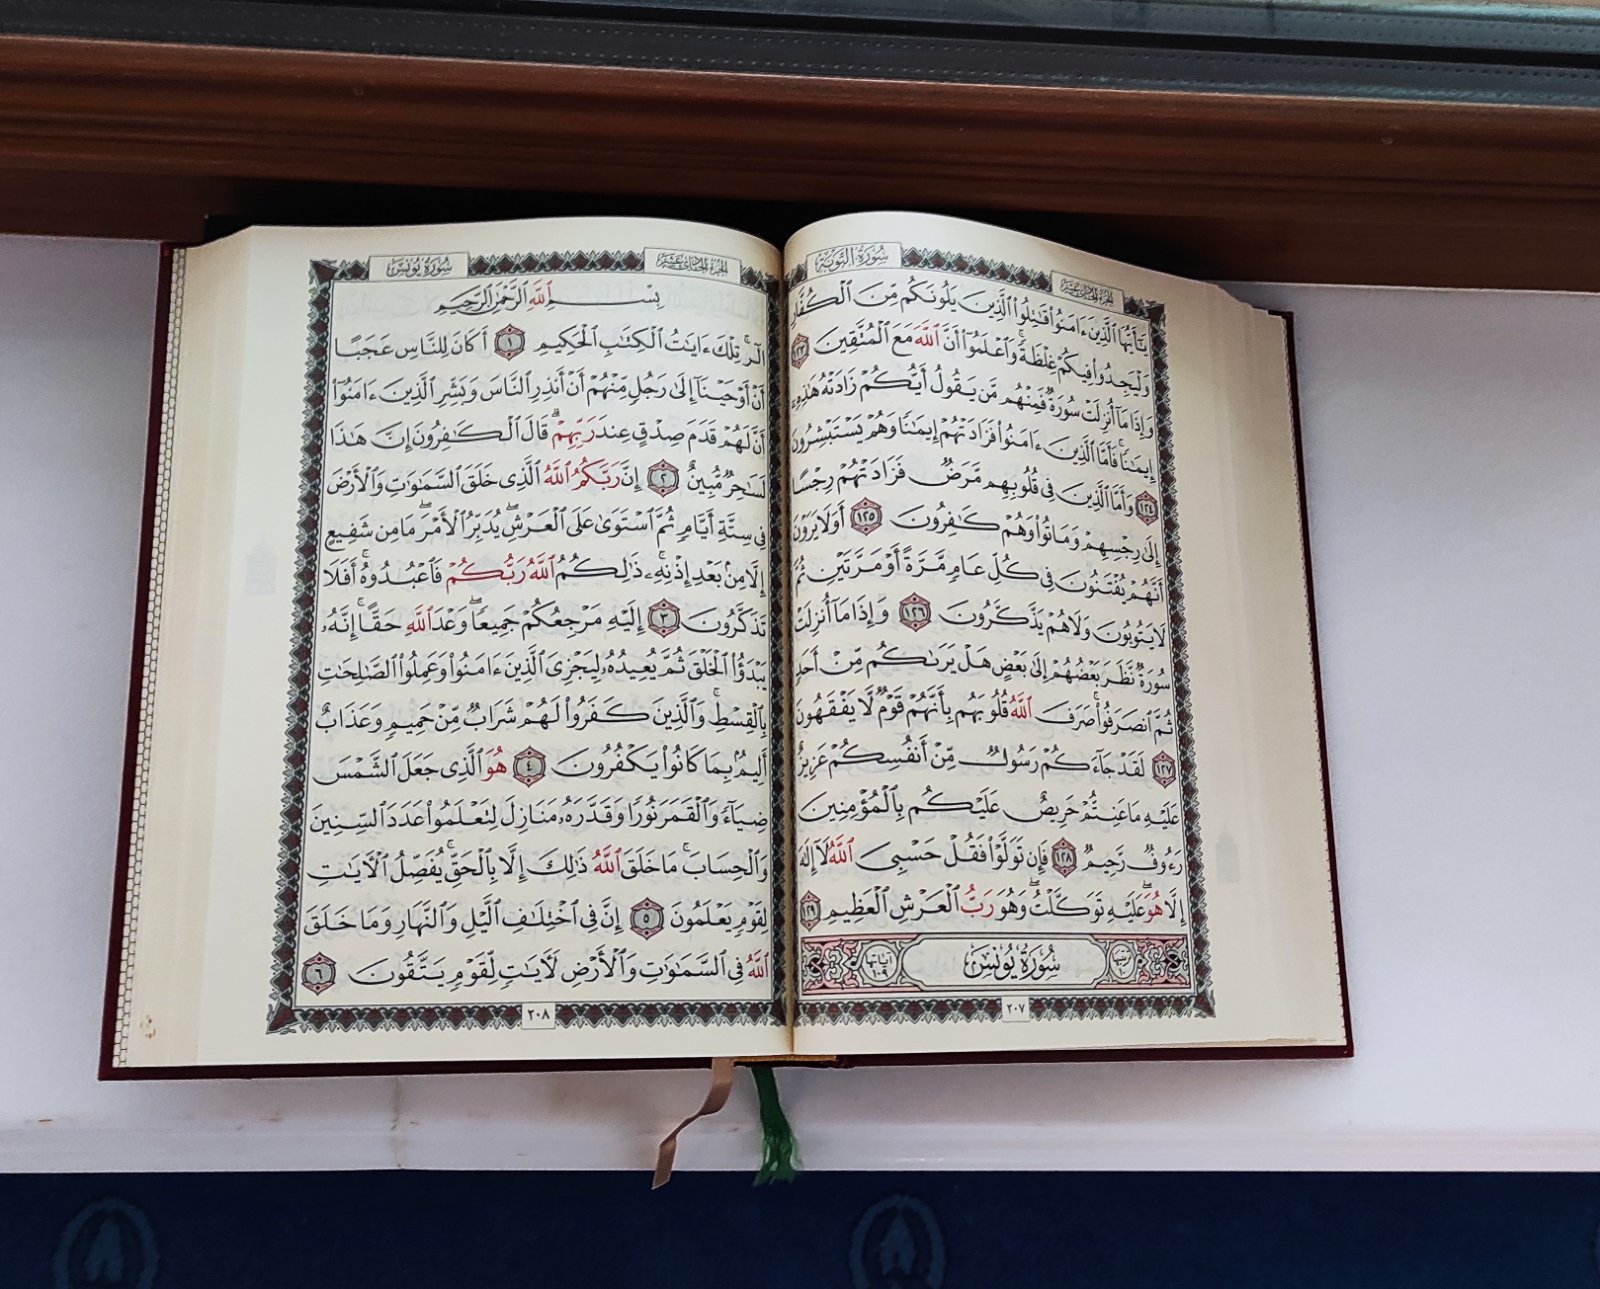 سُورَةُ التَّوْبَةِ
الجزء الحادي عشر
يَٰٓأَيُّهَا ٱلَّذِينَ ءَامَنُوا۟ قَٰتِلُوا۟ ٱلَّذِينَ يَلُونَكُم مِّنَ ٱلْكُفَّارِ
وَلْيَجِدُوا۟ فِيكُمْ غِلْظَةً ۚ وَٱعْلَمُوٓا۟ أَنَّ ٱللَّهَ مَعَ ٱلْمُتَّقِينَ ١٢٣
وَإِذَا مَآ أُنزِلَتْ سُورَةٌ فَمِنْهُم مَّن يَقُولُ أَيُّكُمْ زَادَتْهُ هَٰذِهِۦٓ
إِيمَٰنًا ۚ فَأَمَّا ٱلَّذِينَ ءَامَنُوا۟ فَزَادَتْهُمْ إِيمَٰنًا وَهُمْ يَسْتَبْشِرُونَ
١٢٤ وَأَمَّا ٱلَّذِينَ فِى قُلُوبِهِم مَّرَضٌ فَزَادَتْهُمْ رِجْسًا
إِلَىٰ رِجْسِهِمْ وَمَاتُوا۟ وَهُمْ كَٰفِرُونَ ١٢٥ أَوَلَا يَرَوْنَ
أَنَّهُمْ يُفْتَنُونَ فِى كُلِّ عَامٍ مَّرَّةً أَوْ مَرَّتَيْنِ ثُمَّ
لَا يَتُوبُونَ وَلَا هُمْ يَذَّكَّرُونَ ١٢٦ وَإِذَا مَآ أُنزِلَتْ
سُورَةٌ نَّظَرَ بَعْضُهُمْ إِلَىٰ بَعْضٍ هَلْ يَرَىٰكُم مِّنْ أَحَدٍ
ثُمَّ ٱنصَرَفُوا۟ ۚ صَرَفَ ٱللَّهُ قُلُوبَهُم بِأَنَّهُمْ قَوْمٌ لَّا يَفْقَهُونَ
١٢٧ لَقَدْ جَآءَكُمْ رَسُولٌ مِّنْ أَنفُسِكُمْ عَزِيزٌ
عَلَيْهِ مَا عَنِتُّمْ حَرِيصٌ عَلَيْكُم بِٱلْمُؤْمِنِينَ
رَءُوفٌ رَّحِيمٌ ١٢٨ فَإِن تَوَلَّوْا۟ فَقُلْ حَسْبِىَ ٱللَّهُ لَآ إِلَٰهَ
إِلَّا هُوَ ۖ عَلَيْهِ تَوَكَّلْتُ ۖ وَهُوَ رَبُّ ٱلْعَرْشِ ٱلْعَظِيمِ ١٢٩
ترتيبها ١٠ سُورَةُ يُونُسَ آياتها ١٠٩
٢٠٧
الجزء الحادي عشر
سُورَةُ يُونُسَ
بِسْمِ ٱللَّهِ ٱلرَّحْمَٰنِ ٱلرَّحِيمِ
الٓر ۚ تِلْكَ ءَايَٰتُ ٱلْكِتَٰبِ ٱلْحَكِيمِ ١ أَكَانَ لِلنَّاسِ عَجَبًا
أَنْ أَوْحَيْنَآ إِلَىٰ رَجُلٍ مِّنْهُمْ أَنْ أَنذِرِ ٱلنَّاسَ وَبَشِّرِ ٱلَّذِينَ ءَامَنُوٓا۟
أَنَّ لَهُمْ قَدَمَ صِدْقٍ عِندَ رَبِّهِمْ ۗ قَالَ ٱلْكَٰفِرُونَ إِنَّ هَٰذَا
لَسَٰحِرٌ مُّبِينٌ ٢ إِنَّ رَبَّكُمُ ٱللَّهُ ٱلَّذِى خَلَقَ ٱلسَّمَٰوَٰتِ وَٱلْأَرْضَ
فِى سِتَّةِ أَيَّامٍ ثُمَّ ٱسْتَوَىٰ عَلَى ٱلْعَرْشِ ۖ يُدَبِّرُ ٱلْأَمْرَ ۖ مَا مِن شَفِيعٍ
إِلَّا مِنۢ بَعْدِ إِذْنِهِۦ ۚ ذَٰلِكُمُ ٱللَّهُ رَبُّكُمْ فَٱعْبُدُوهُ ۚ أَفَلَا
تَذَكَّرُونَ ٣ إِلَيْهِ مَرْجِعُكُمْ جَمِيعًا ۖ وَعْدَ ٱللَّهِ حَقًّا ۚ إِنَّهُۥ
يَبْدَؤُا۟ ٱلْخَلْقَ ثُمَّ يُعِيدُهُۥ لِيَجْزِىَ ٱلَّذِينَ ءَامَنُوا۟ وَعَمِلُوا۟ ٱلصَّٰلِحَٰتِ
بِٱلْقِسْطِ ۚ وَٱلَّذِينَ كَفَرُوا۟ لَهُمْ شَرَابٌ مِّنْ حَمِيمٍ وَعَذَابٌ
أَلِيمٌۢ بِمَا كَانُوا۟ يَكْفُرُونَ ٤ هُوَ ٱلَّذِى جَعَلَ ٱلشَّمْسَ
ضِيَآءً وَٱلْقَمَرَ نُورًا وَقَدَّرَهُۥ مَنَازِلَ لِتَعْلَمُوا۟ عَدَدَ ٱلسِّنِينَ
وَٱلْحِسَابَ ۚ مَا خَلَقَ ٱللَّهُ ذَٰلِكَ إِلَّا بِٱلْحَقِّ ۚ يُفَصِّلُ ٱلْءَايَٰتِ
لِقَوْمٍ يَعْلَمُونَ ٥ إِنَّ فِى ٱخْتِلَٰفِ ٱلَّيْلِ وَٱلنَّهَارِ وَمَا خَلَقَ
ٱللَّهُ فِى ٱلسَّمَٰوَٰتِ وَٱلْأَرْضِ لَءَايَٰتٍ لِّقَوْمٍ يَتَّقُونَ ٦
٢٠٨